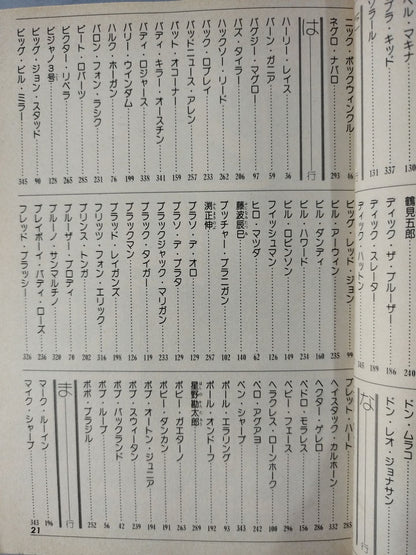 ベル・マキナ……130
ブラ・キッド……337
ソラール……131
行
ニック・ボックウィンクル……46
ネグロ・ナバロ……293
は行
ハーリー・レイス……36
バーン・ガニア……59
バグジー・マグロー……97
バズ・タイラー……206
ハックソー・リード……262
バック・ロブレイ……233
バッドニュース・アレン……257
パット・オコーナー……159
パティ・キラー・オースチン……341
バディ・ロジャース……338
バリー・ウインダム……199
ハルク・ホーガン……76
バロン・フォン・ラシク……231
ビート・ロバーツ……285
ビクター・リベラ……265
ビジャノ3号……128
ビッグ・ジョン・スタッド……90
ビッグ・ビル・ミラー……345
鶴見五郎……240
ディック・ザ・ブルーザー……186
ディック・スレーター……189
ディック・ハットン……345
ビッグ・レッド・ジョン……99
ビル・アーウィン……235
ビル・ダンディ……160
ビル・ハワード……231
ビル・ロビンソン……149
フィッシュマン……126
ヒロ・マツダ……62
藤波辰巳……140
ブッチャー・ブラニガン……102
渕正伸……287
ブラソ・デ・オロ……129
ブラソ・デ・プラタ……129
ブラックジャック・マリガン……133
ブラック・タイガー……119
ブラックマン……111
ブラッド・レイガンズ……158
フリッツ・フォン・エリック……316
プリンス・トンガ……202
ブルーザー・ブロディ……70
ブルーノ・サンマルチノ……320
プレイボーイ・バディ・ローズ……236
フレッド・ブラッシー……326
ドン・ムラコ
ドン・レオ・ジョナサン
な
ブレット・ハート……285
ヘイスタック・カルホーン……332
ヘクター・ゲレロ……286
ペドロ・モラレス……156
ベビー・フェース……296
ヘラクレス・ローンホーク……100
ペロ・アグアヨ……242
ベン・シャープ……343
ポール・エラリング……93
ポール・オンドーフ……192
星野勘太郎……289
ボビー・ガエターノ……263
ボビー・ダンカン……191
ボブ・オートン・ジュニア……194
ボブ・スウィータン……239
ボブ・バックランド……42
ボブ・ループ……56
ボボ・ブラジル……252
ま行
マーク・ルーイン……196
マイク・シャープ……343
21